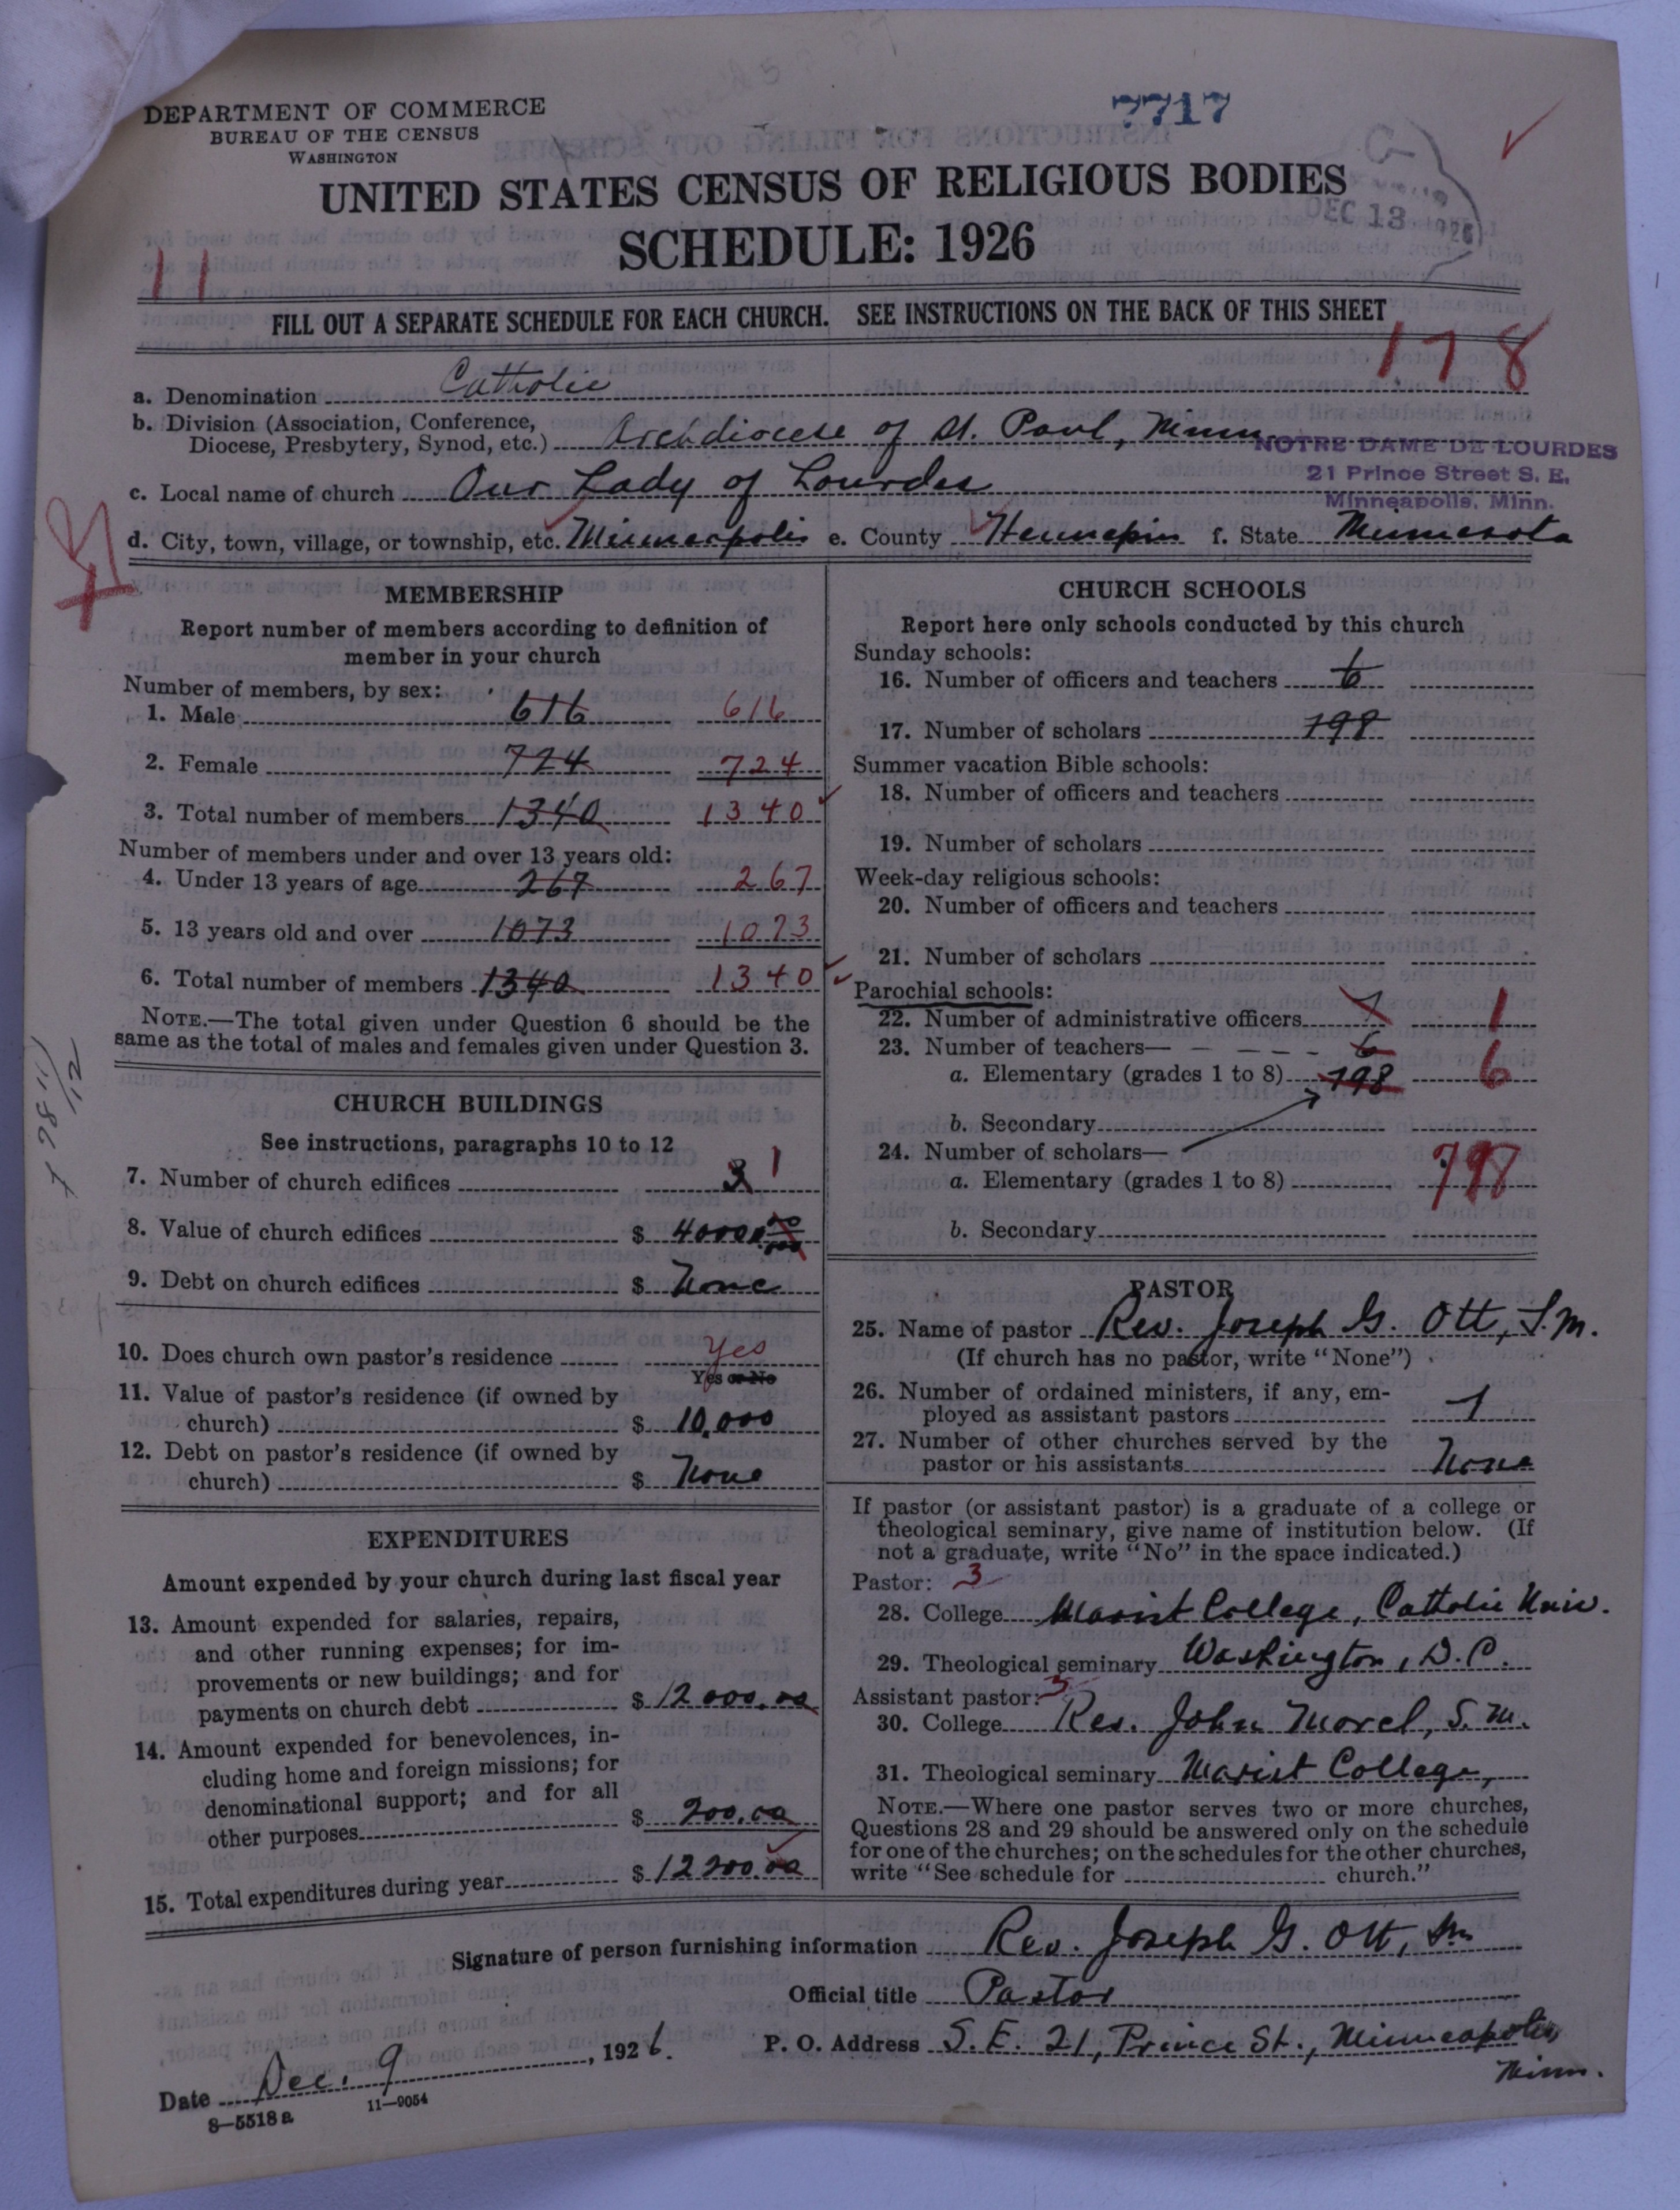 7717
DEPARTMENT OF COMMERCE
BUREAU OF THE CENSUS
WASHINGTON
UNITED STATES CENSUS OF RELIGIOUS BODIES
SCHEDULE: 1926
DEC 13 1926
11
FILL OUT A SEPARATE SCHEDULE FOR EACH CHURCH. SEE INSTRUCTIONS ON THE BACK OF THIS SHEET
178
a. Denomination Catholic
b. Division (Association, Conference,
Diocese, Presbytery, Synod, etc.) Archdiocese of St. Paul, Minn
NOTRE DAME DE LOURDES
21 Prince Street S. E.
Minneapolis, Minn.
c. Local name of church Our Lady of Lourdes
d. City, town, village, or township, etc. Minneapolis e. County Hennepin f. State Minnesota
MEMBERSHIP
Report number of members according to definition of
member in your church
Number of members, by sex:
1. Male 616 616
2. Female 724 724
3. Total number of members 1340 1340
Number of members under and over 13 years old:
4. Under 13 years of age 267 267
5. 13 years old and over 1073 1073
6. Total number of members 1340 1340
NOTE.—The total given under Question 6 should be the
same as the total of males and females given under Question 3.
CHURCH BUILDINGS
See instructions, paragraphs 10 to 12
7. Number of church edifices 1
8. Value of church edifices $ 40000
9. Debt on church edifices $ None
10. Does church own pastor's residence Yes
Yes or No
11. Value of pastor's residence (if owned by
church) $ 10,000
12. Debt on pastor's residence (if owned by
church) $ None
EXPENDITURES
Amount expended by your church during last fiscal year
13. Amount expended for salaries, repairs,
and other running expenses; for im-
provements or new buildings; and for
payments on church debt $ 12000.00
14. Amount expended for benevolences, in-
cluding home and foreign missions; for
denominational support; and for all
other purposes $ 200.00
15. Total expenditures during year $ 12200.00
CHURCH SCHOOLS
Report here only schools conducted by this church
Sunday schools:
16. Number of officers and teachers 6
17. Number of scholars 198
Summer vacation Bible schools:
18. Number of officers and teachers
19. Number of scholars
Week-day religious schools:
20. Number of officers and teachers
21. Number of scholars
Parochial schools:
22. Number of administrative officers 1 1
23. Number of teachers— 6
a. Elementary (grades 1 to 8) 198 6
b. Secondary
24. Number of scholars—
a. Elementary (grades 1 to 8) 198
b. Secondary
PASTOR
25. Name of pastor Rev. Joseph G. Ott, S.M.
(If church has no pastor, write "None")
26. Number of ordained ministers, if any, em-
ployed as assistant pastors 1
27. Number of other churches served by the
pastor or his assistants None
If pastor (or assistant pastor) is a graduate of a college or
theological seminary, give name of institution below. (If
not a graduate, write "No" in the space indicated.)
Pastor: 3
28. College Marist College, Catholic Univ.
29. Theological seminary Washington, D.C.
Assistant pastor: 3
30. College Rev. John Morel, S.M.
31. Theological seminary Marist College,
NOTE.—Where one pastor serves two or more churches,
Questions 28 and 29 should be answered only on the schedule
for one of the churches; on the schedules for the other churches,
write "See schedule for church."
Signature of person furnishing information Rev. Joseph G. Ott, Sm
Official title Pastor
Date Dec. 9, 1926. P. O. Address S. E. 21, Prince St., Minneapolis,
Minn.
8—5518a 11—9054